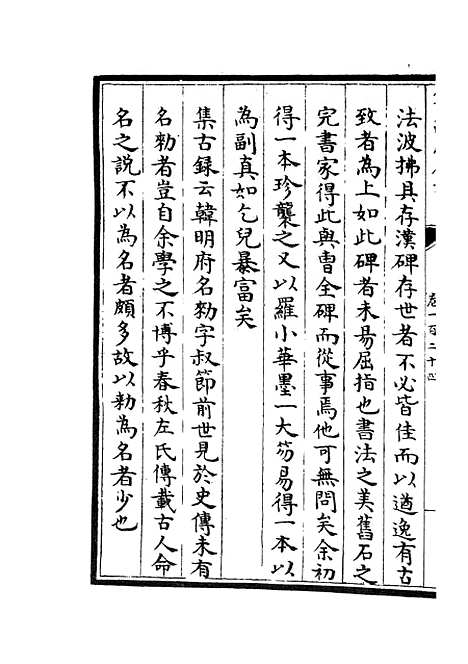 法波拂具存漢碑存世者不必皆佳而以遒逸有古
致者為上如此碑者未易屈指也書法之美舊石之
完書家得此與曹全碑而從事焉他可無問矣余初
得一本珍襲之又以羅小華墨一大笏易得一本以
為副真如乞兒暴富矣
集古録云韓明府名勑字叔節前世見於史傳未有
名勑者豈自余學之不博乎春秋左氏傳載古人命
名之說不以為名者頗多故以勑為名者少也
卷一百二十四